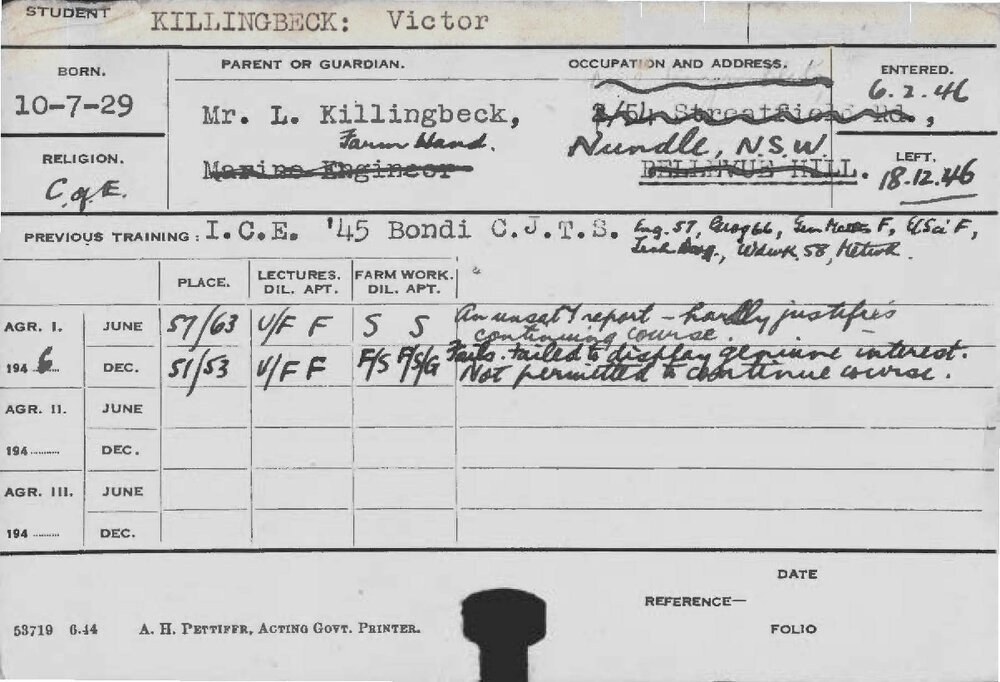 STUDENT KILLINGBECK: Victor
BORN. PARENT OR GUARDIAN. OCCUPATION AND ADDRESS. ENTERED.
10-7-29 6.2.46
Mr. L. Killingbeck, 2/54 Streatfield Rd.,
Farm Hand. Nundle, N.S.W.
RELIGION. Marine Engineer BELLEVUE HILL. LEFT.
C. of E. 18.12.46
PREVIOUS TRAINING: I.C.E. '45 Bondi C.J.T.S. Eng. 57, Geog 66, Gen Maths F, El Sci F,
Tech Draw., Wdwk, 58, Metwk.
PLACE. LECTURES. FARM WORK.
DIL. APT. DIL. APT.
AGR. I. JUNE 57/63 U/F F S S An unsat report – hardly justifies
continuing course.
1946 DEC. 51/53 U/F F F/S F/S/G Fails. Failed to display genuine interest.
Not permitted to continue course.
AGR. II. JUNE
194 ......... DEC.
AGR. III. JUNE
194 ......... DEC.
DATE
REFERENCE—
FOLIO
53719 6.44 A. H. PETTIFER, ACTING GOVT. PRINTER.